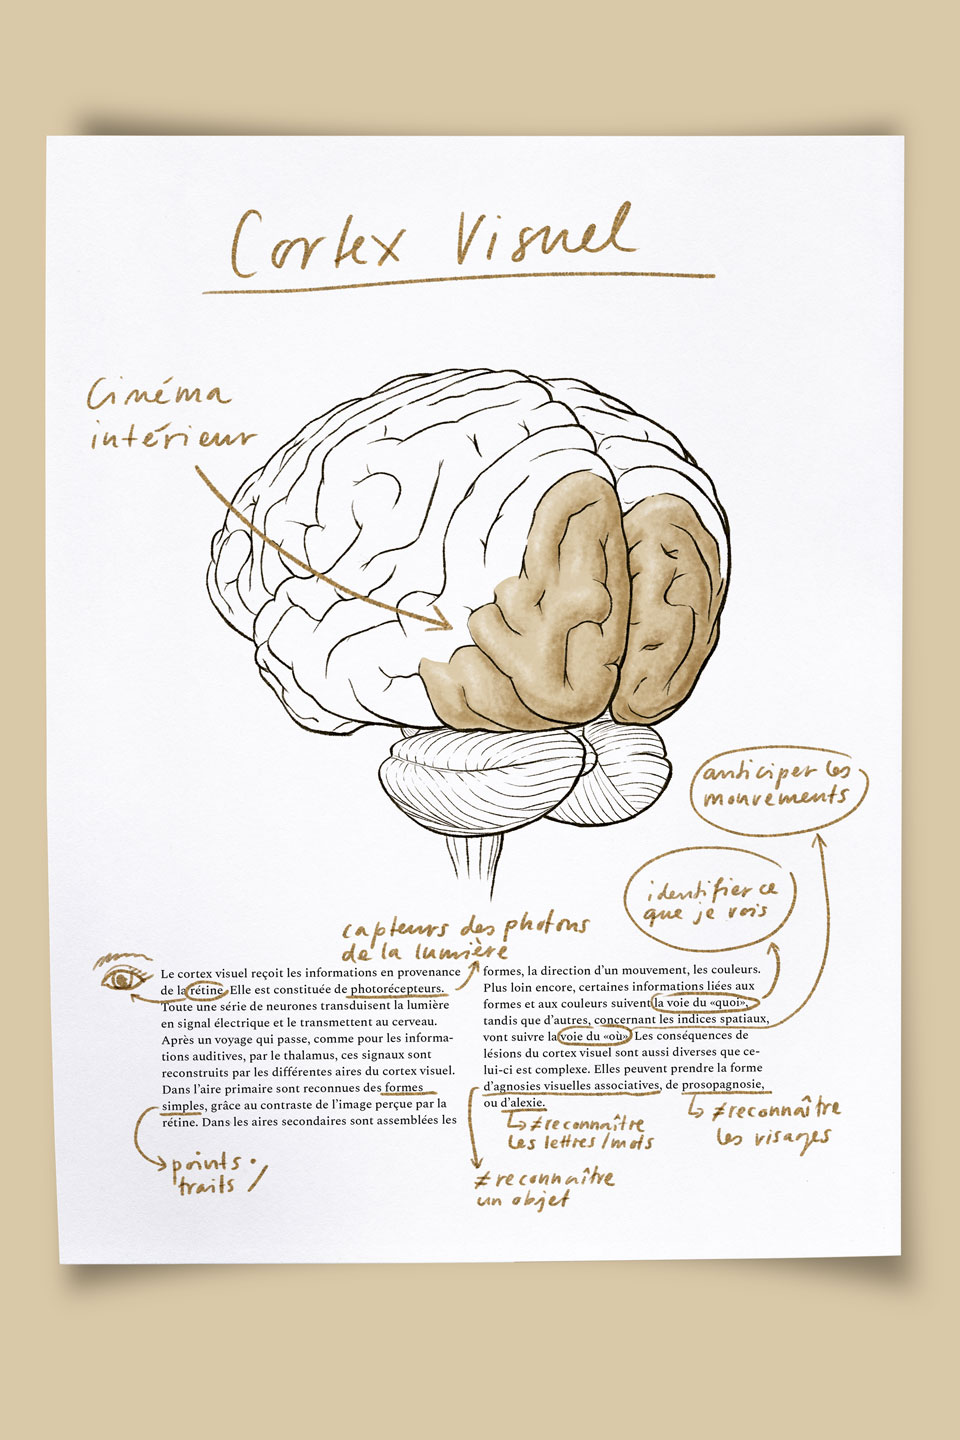 Cortex Visuel
Cinéma
intérieur
anticiper les
mouvements
identifier ce
que je vois
capteurs des photons
de la lumière
Le cortex visuel reçoit les informations en provenance
de la rétine. Elle est constituée de photorécepteurs.
Toute une série de neurones transduisent la lumière
en signal électrique et le transmettent au cerveau.
Après un voyage qui passe, comme pour les informa-
tions auditives, par le thalamus, ces signaux sont
reconstruits par les différentes aires du cortex visuel.
Dans l’aire primaire sont reconnues des formes
simples, grâce au contraste de l’image perçue par la
rétine. Dans les aires secondaires sont assemblées les
formes, la direction d’un mouvement, les couleurs.
Plus loin encore, certaines informations liées aux
formes et aux couleurs suivent la voie du «quoi»,
tandis que d’autres, concernant les indices spatiaux,
vont suivre la voie du «où». Les conséquences de
lésions du cortex visuel sont aussi diverses que ce-
lui-ci est complexe. Elles peuvent prendre la forme
d’agnosies visuelles associatives, de prosopagnosie,
ou d’alexie.
points •
traits /
≠ reconnaître
les lettres/mots
≠ reconnaître
les visages
≠ reconnaître
un objet